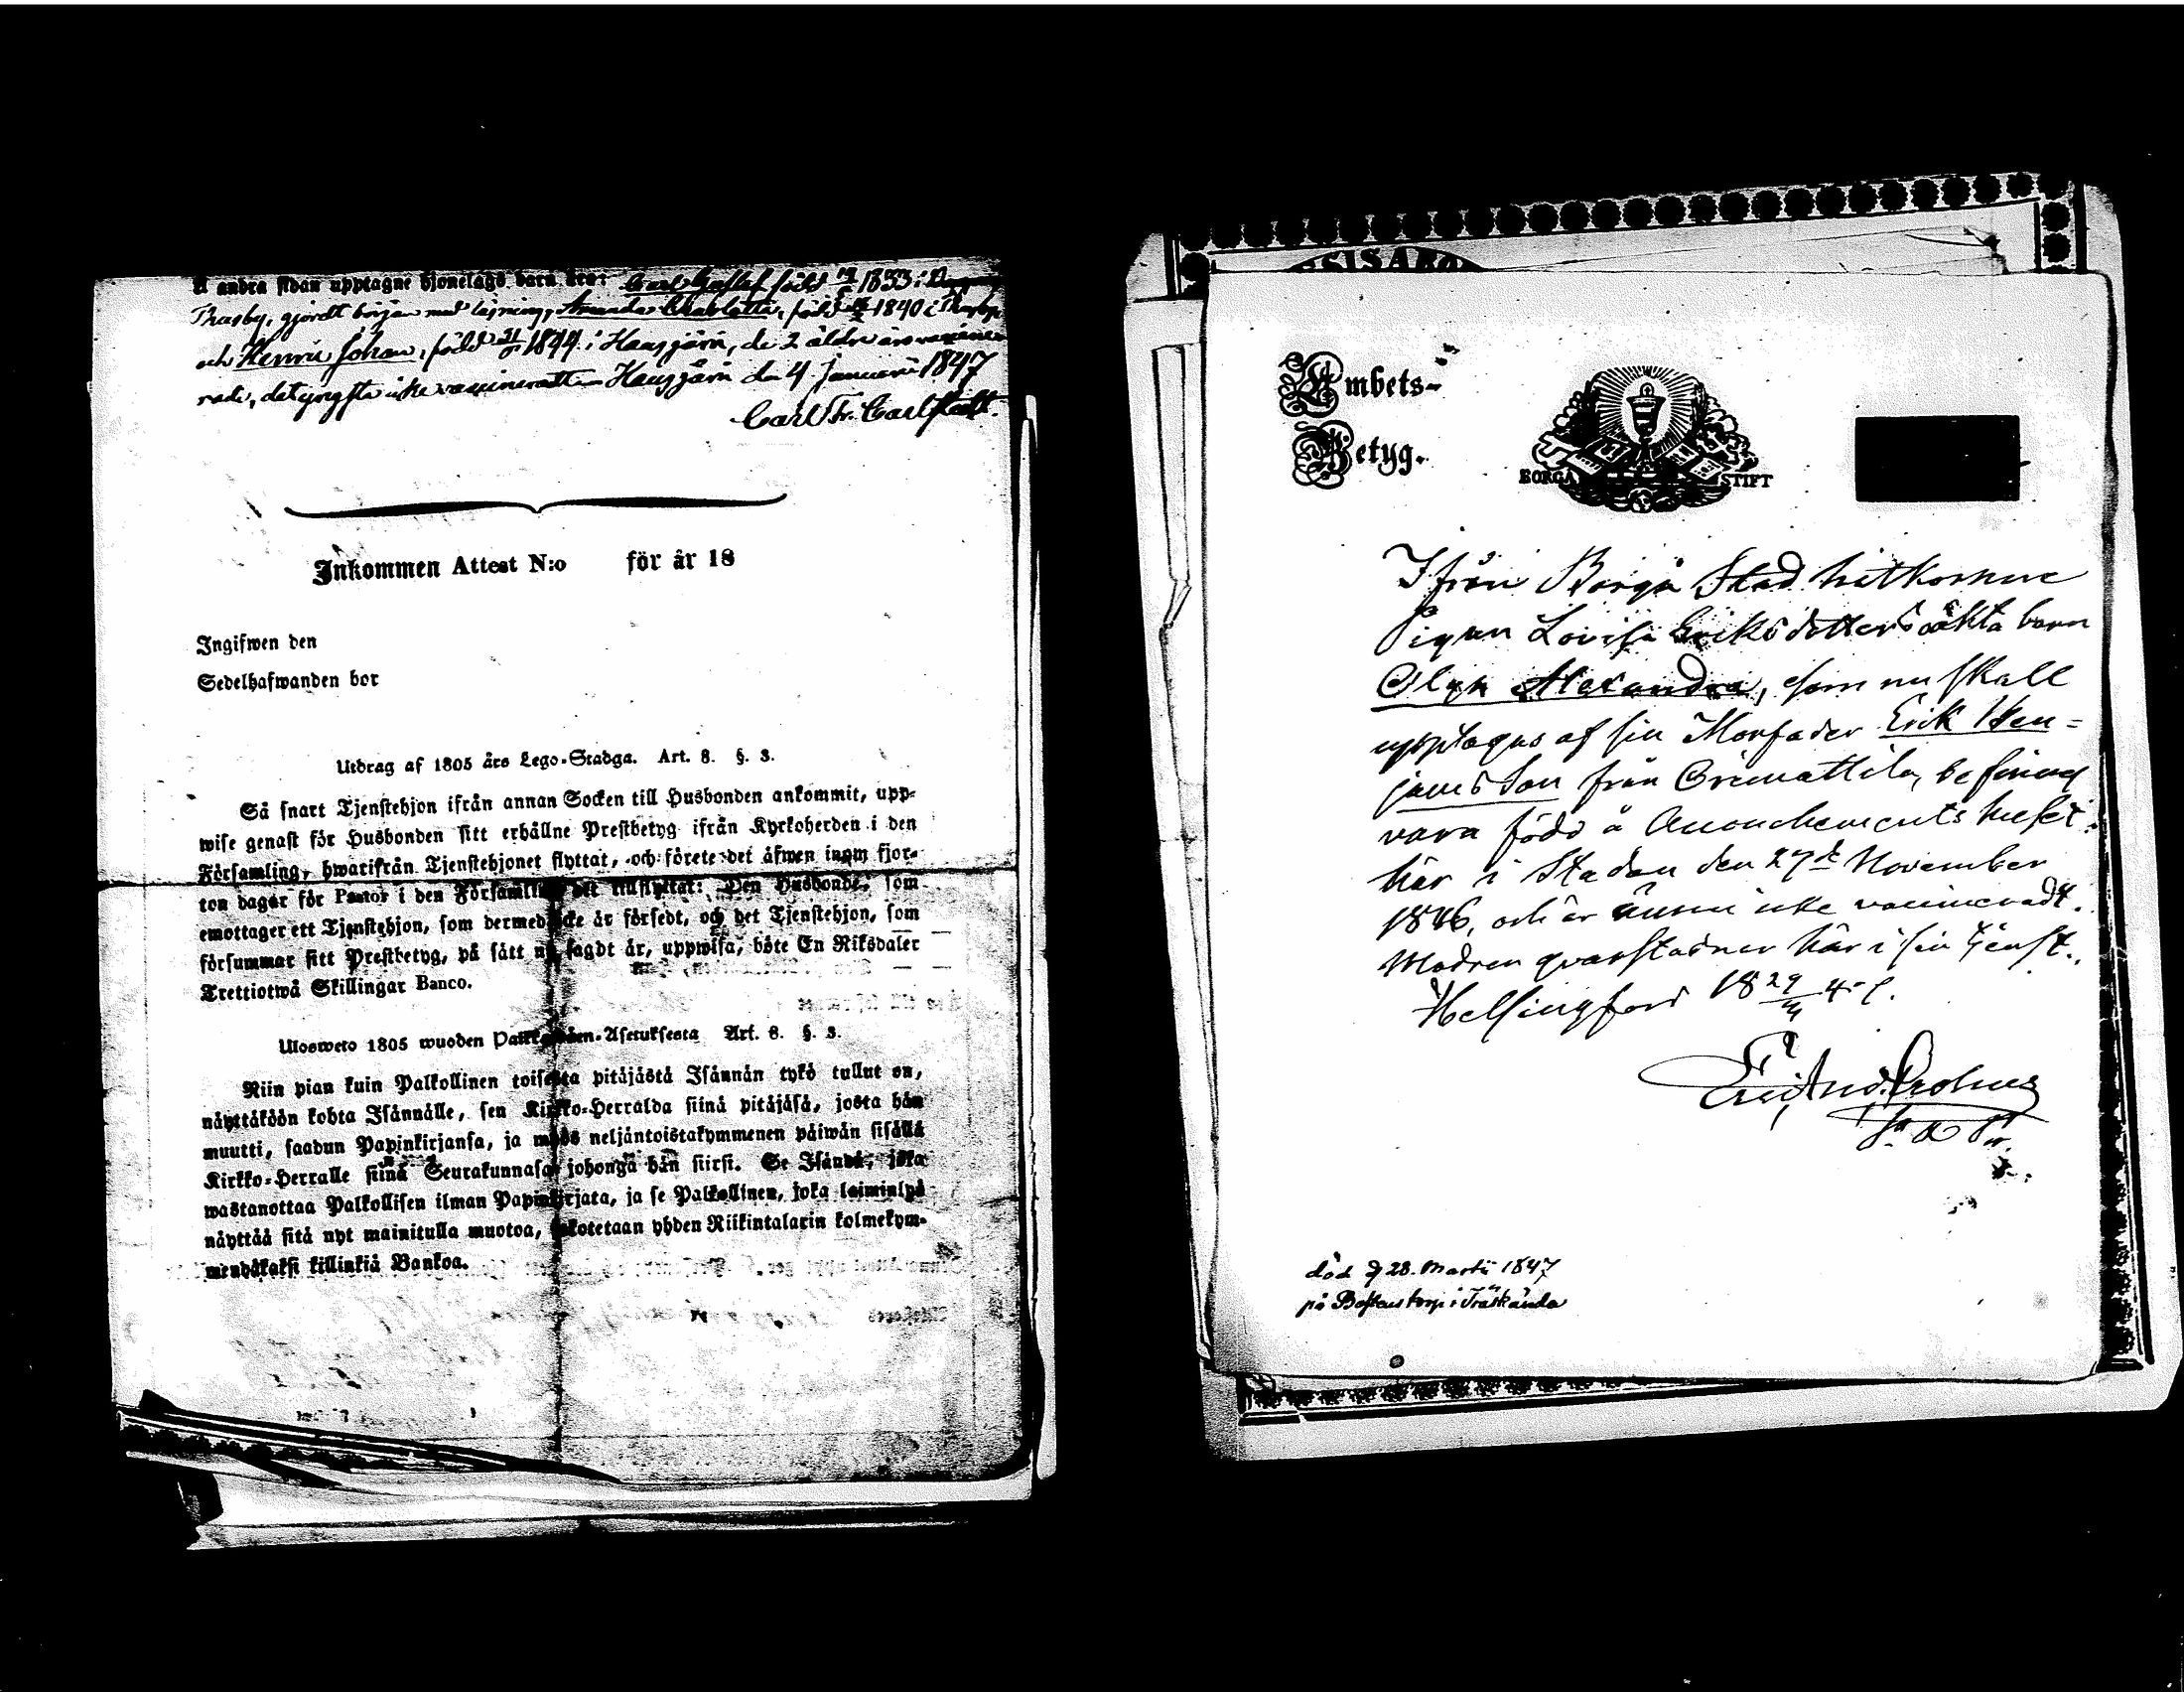 å andra sidan upptagne hjonelags barn äro: Carl Gustaf född 1833 i
Thusby, gjordt början med läsning, Amanda Charlotta, född 1840 i Thusby
och Henric Johan, född 1844 i Hausjärvi, de 2 äldre äro vaccine-
rade, det yngsta icke vaccineradt. Hausjärvi den 4 Januarii 1847
Carl Fr. Carlstedt.
Inkommen Attest N:o för år 18
Ingifwen den
Sedelhafwanden bor
Utdrag af 1805 års Lego-Stadga. Art. 8. §. 3.
Så snart Tjenstehjon ifrån annan Socken till Husbonden ankommit, upp-
wise genast för Husbonden sitt erhållne Prestbetyg ifrån Kyrkoherden i den
Församling, hwarifrån Tjenstehjonet flyttat, och förete det äfwen inom fjor-
ton dagar för Pastor i den Församling det tillflyttat: Den Husbonde, som
emottager ett Tjenstehjon, som dermed icke är försedt, och det Tjenstehjon, som
försummar sitt Prestbetyg, på sått nu sagdt är, uppwisa, böte En Riksdaler
Trettiotwå Skillingar Banco.
Ulosweto 1805 wuoden Palkollisten-Asetuksesta Art. 8. §. 3.
Niin pian kuin Palkollinen toisesta pitäjästä Isännän tykö tullut on,
näyttäköön kohta Isännälle, sen Kirkko-Herralda siinä pitäjäsä, josta hän
muutti, saadun Papinkirjansa, ja myös neljäntoistakymmenen päiwän sisällä
Kirkko-Herralle siinä Seurakunnasa johonga hän siirsi. Se Isändä, joka
wastanottaa Palkollisen ilman Papinkirjata, ja se Palkollinen, joka laiminlyö
näyttää sitä nyt mainitulla muotoa, sakotetaan yhden Riikintalarin kolmekym-
mendäkaksi killinkiä Bankoa.
Embets-
Betyg.
BORGÅ STIFT
Ifrån Borgå Stad hitkomne
Pigan Lovisa Eriksdotters oäkta barn
Olga Alexandra, som nu skall
upptagas af sin Morfader Erik Ben-
jamsson från Orimattila, befinnes
vara född å Accouchementshuset
här i Staden den 27de November
1846, och är ännu icke vaccineradt.
Modren qvarstadnar här i sin tjenst.
Helsingfors 18 47.
död d 28. Martii 1847
på Bostens torp i Träskända